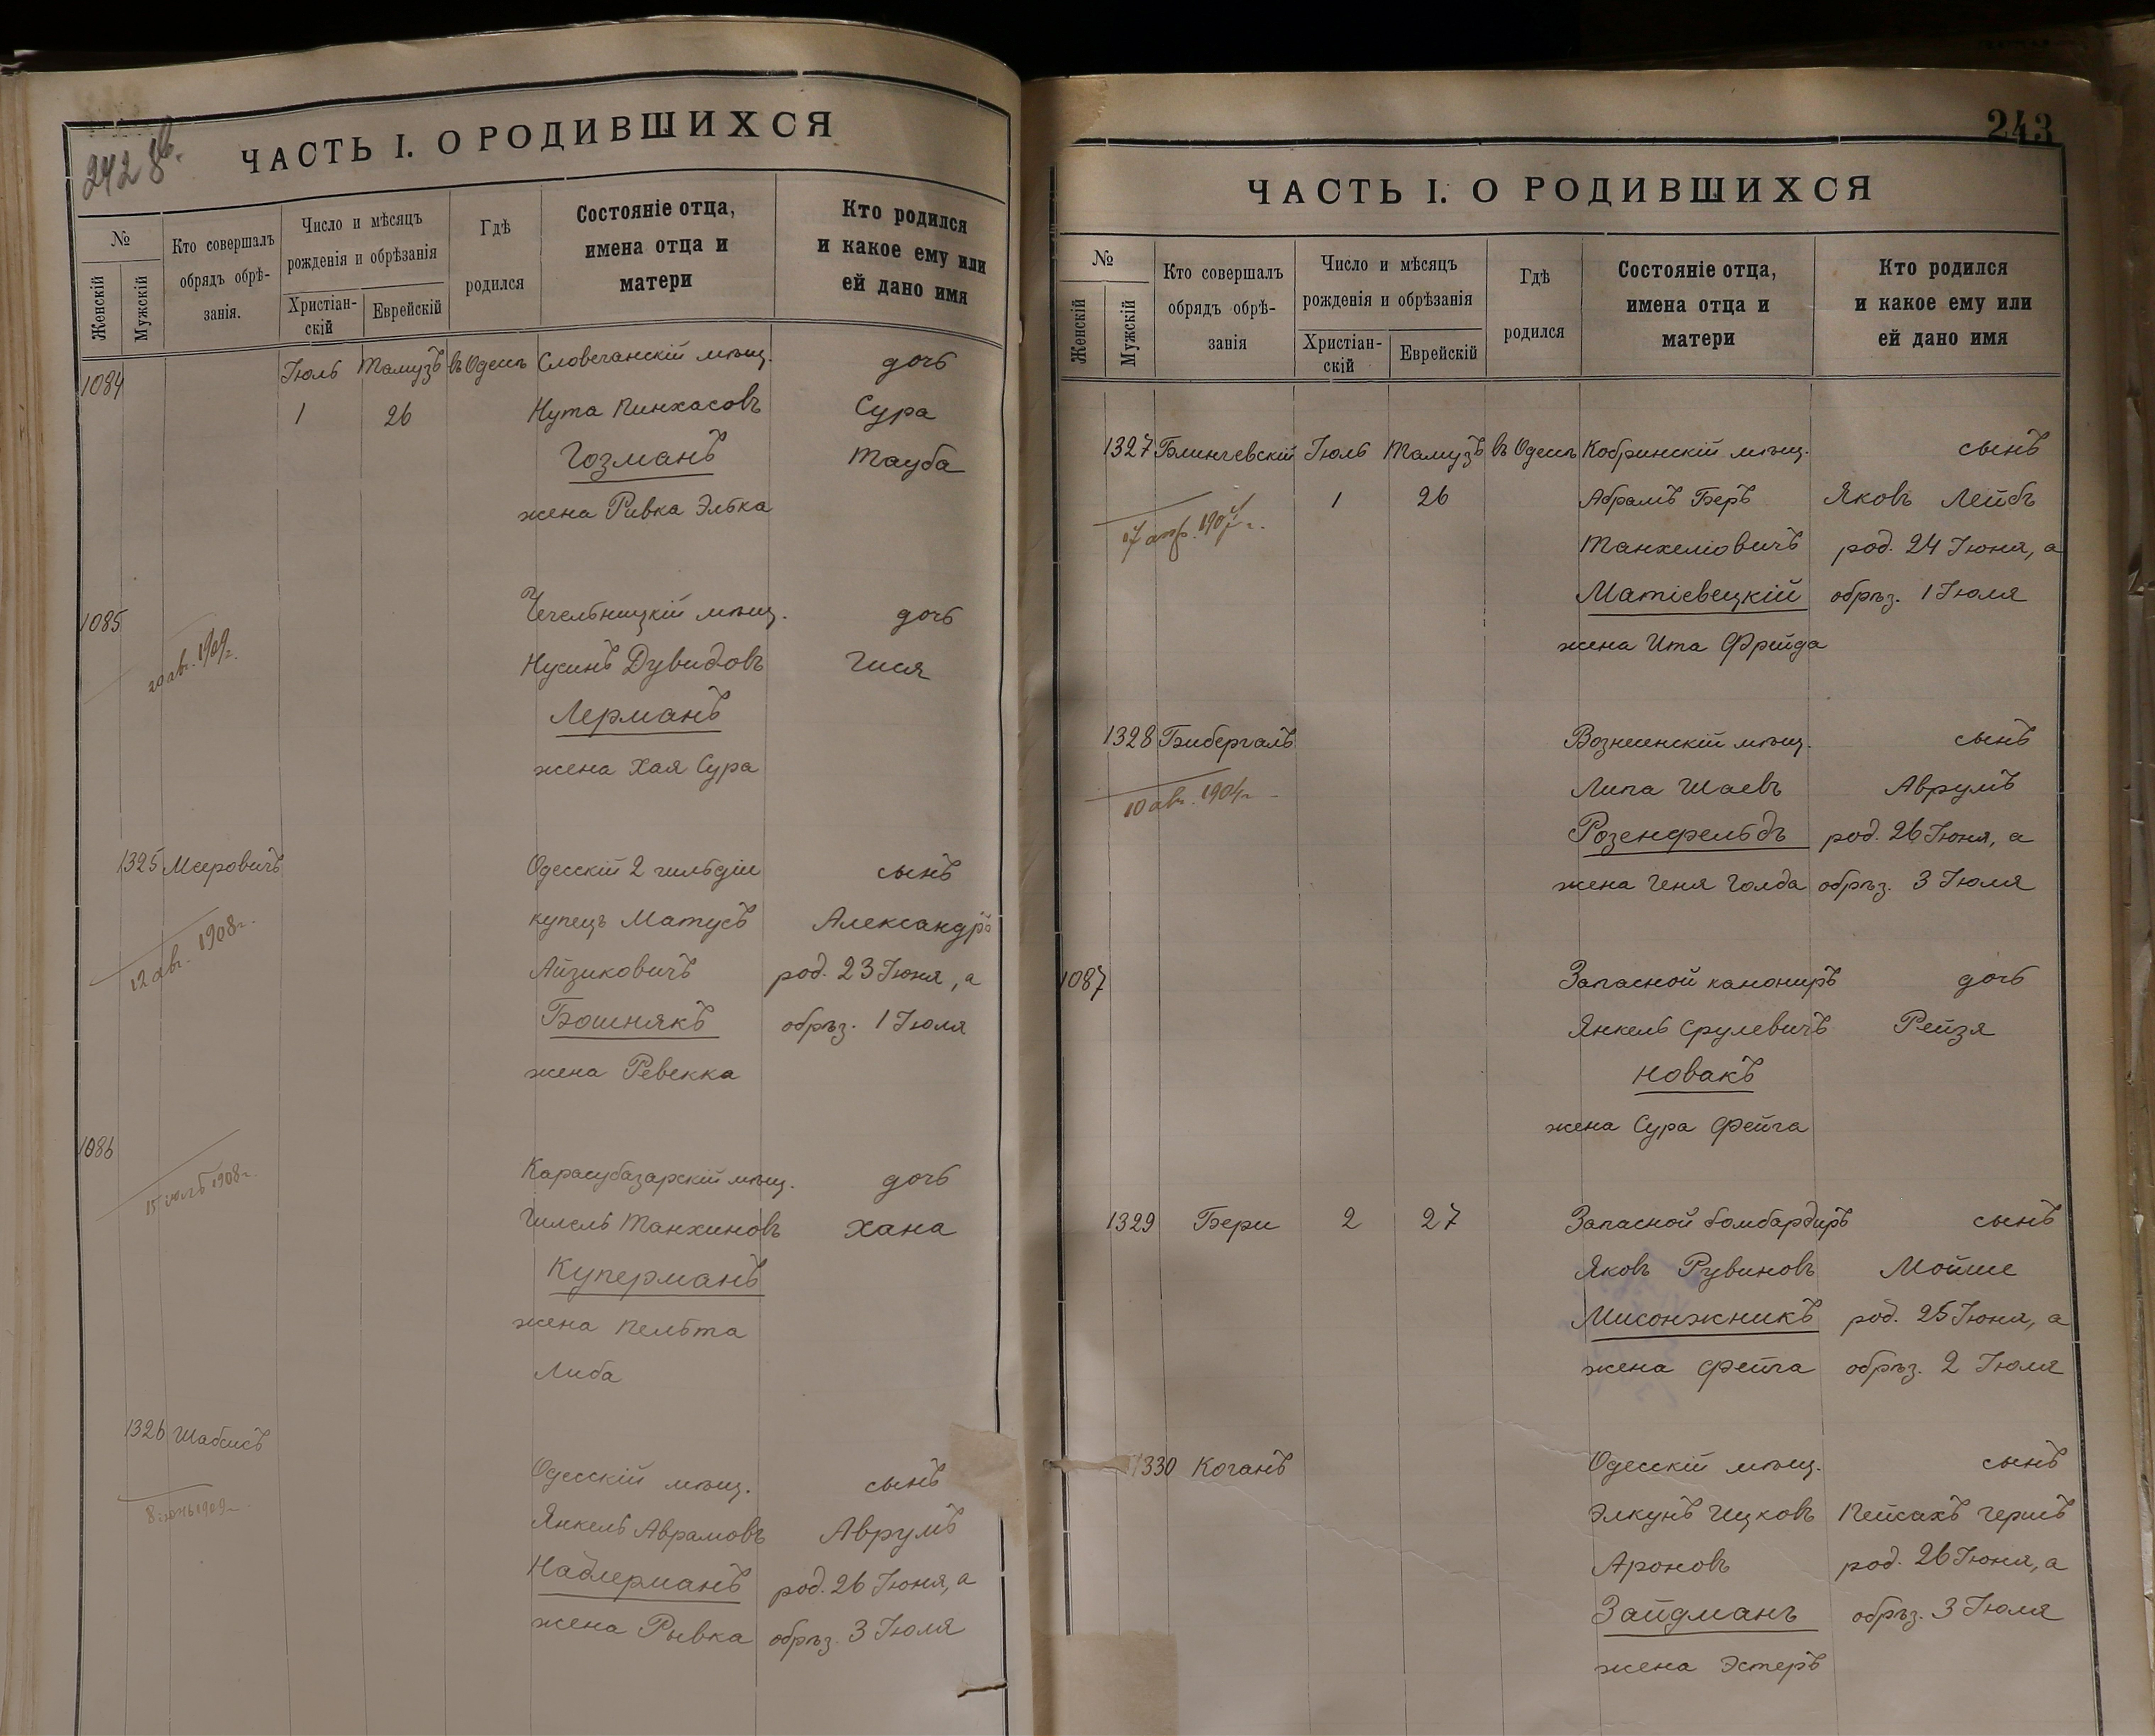 242 об.
ЧАСТЬ I. О РОДИВШИХСЯ
№
Женскій
Мужскій
Кто совершалъ
обрядъ обрѣ-
занія.
Число и мѣсяцъ
рожденія и обрѣзанія
Христіан-
скій
Еврейскій
Гдѣ
родился
Состояніе отца,
имена отца и
матери
Кто родился
и какое ему или
ей дано имя
1084 Іюль Тамузъ въ Одессѣ Словечанскій мѣщ. дочь
1 26 Нута Пинхасовъ Сура
Гозманъ Тауба
жена Ривка Элька
1085 Чечельницкій мѣщ. дочь
20 авг. 1909 г. Нусинъ Дувидовъ Гися
Лерманъ
жена Хая Сура
1325 Мееровичъ Одесскій 2 гильдіи сынъ
12 авг. 1908 г. купецъ Матусъ Александръ
Айзиковичъ род. 23 Іюня, а
Бошнякъ обрѣз. 1 Іюля
жена Ревекка
1086 Карасубазарскій мѣщ. дочь
15 іюль 1908 г. Гилель Танхиновъ Хана
Куперманъ
жена Пельта
Либа
1326 Шабсисъ Одесскій мѣщ. сынъ
8 1909 г. Янкель Аврамовъ Аврумъ
Надлерманъ род. 26 Іюня, а
жена Рывка обрѣз. 3 Іюля
243
ЧАСТЬ I. О РОДИВШИХСЯ
№
Женскій
Мужскій
Кто совершалъ
обрядъ обрѣ-
занія
Число и мѣсяцъ
рожденія и обрѣзанія
Христіан-
скій
Еврейскій
Гдѣ
родился
Состояніе отца,
имена отца и
матери
Кто родился
и какое ему или
ей дано имя
1327 Блинчевскій Іюль Тамузъ въ Одессѣ Кобринскій мѣщ. сынъ
1 26 Абрамъ Беръ Яковъ Лейбъ
17 Танхеліовичъ род. 24 Іюня, а
Матіевецкій обрѣз. 1 Іюля
жена Ита Фрейда
1328 Бибергалъ Вознесенскій мѣщ. сынъ
10 авг. 1904 г. Липа Шаевъ Аврумъ
Розенфельдъ род. 26 Іюня, а
жена Геня Голда обрѣз. 3 Іюля
1087 Запасной канониръ дочь
Янкель Срулевичъ Рейзя
Новакъ
жена Сура Фейга
1329 Бери 2 27 Запасной бомбардиръ сынъ
Яковъ Рувиновъ Мойше
Мисонжникъ род. 25 Іюня, а
жена Фейга обрѣз. 2 Іюля
1330 Коганъ Одесскій мѣщ. сынъ
Элкунъ Ицковъ Пейсахъ Гершъ
Ароновъ род. 26 Іюня, а
Зайдманъ обрѣз. 3 Іюля
жена Эстеръ